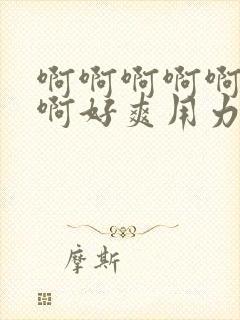 啊啊啊啊啊
啊好爽用力
摩斯